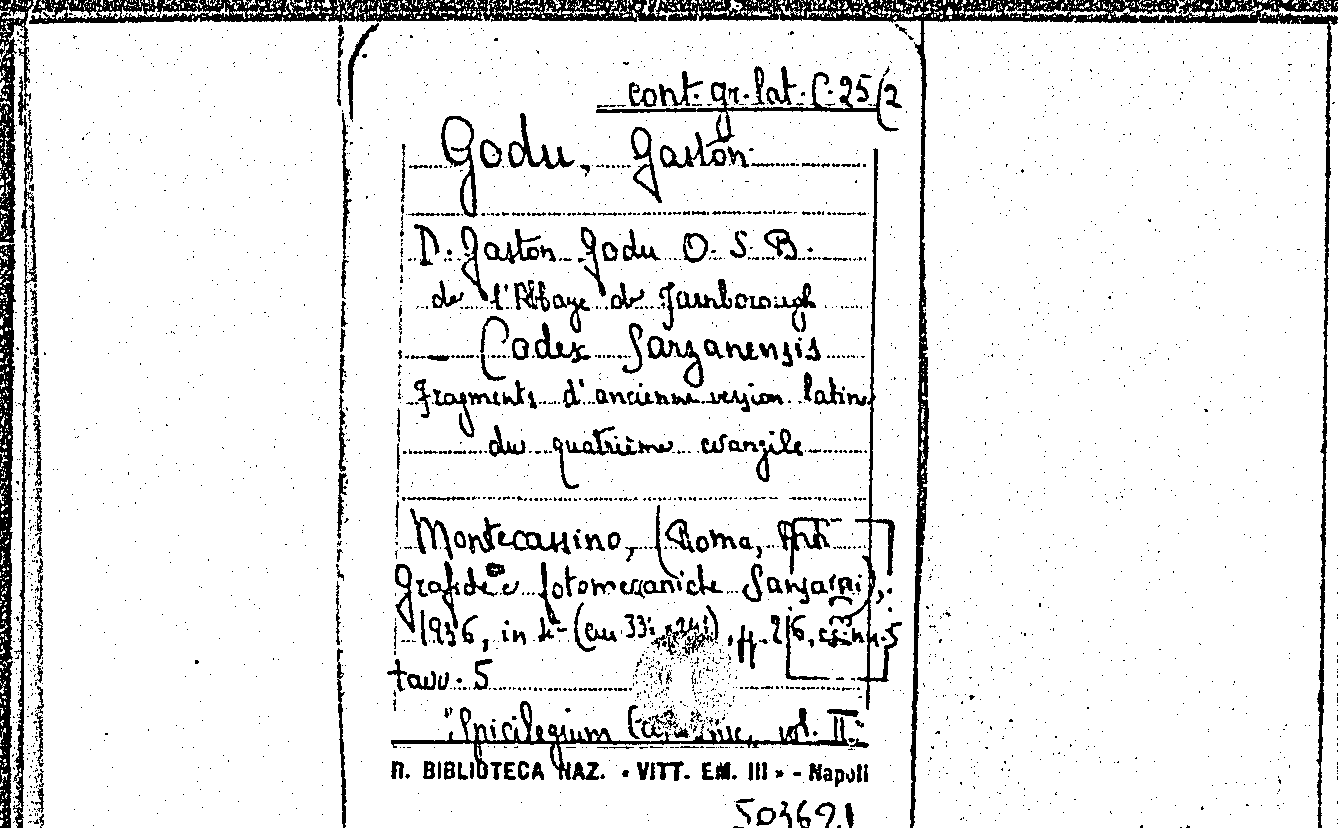 cont. gr. lat. C. 25(2
Godu, Gaston
D. Gaston Godu O. S. B.
de l'Abbaye de Farnborough
- Codex Sarzanensis
Fragments d'ancienne version latine
du quatrième evangile
Montecassino, (Roma, Arti
Grafiche e fotomeccaniche Sansaini),
1936, in 4° (cm. 33
tavv. 5
"Spicilegium vol. II"
R. BIBLIOTECA NAZ. « VITT. EM. III » - Napoli
503691